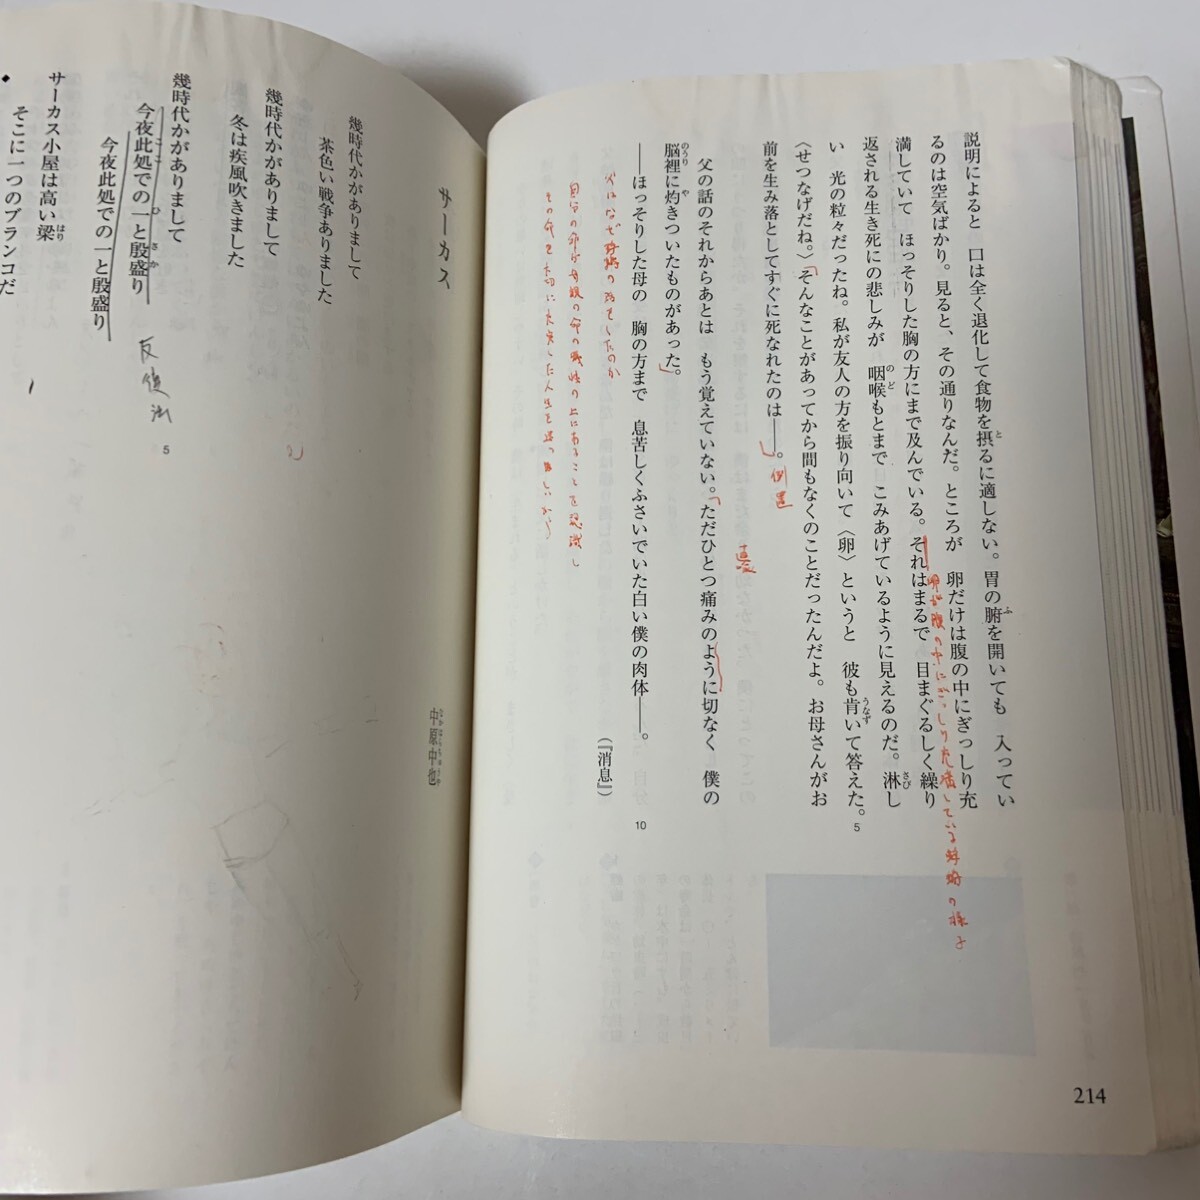 説明によると　口は全く退化して食物を摂るに適しない。胃の腑を開いても　入ってい
るのは空気ばかり。見ると、その通りなんだ。ところが　卵だけは腹の中にぎっしり充
満していて　ほっそりした胸の方にまで及んでいる。それはまるで　目まぐるしく繰り
返される生き死にの悲しみが　咽喉もとまで　こみあげているように見えるのだ。淋し
い　光の粒々だったね。私が友人の方を振り向いて〈卵〉というと　彼も肯いて答えた。
〈せつなげだね。〉そんなことがあってから間もなくのことだったんだよ。お母さんがお
前を生み落としてすぐに死なれたのは――。
父の話のそれからあとは　もう覚えていない。ただひとつ痛みのように切なく　僕の
脳裡に灼きついたものがあった。
――ほっそりした母の　胸の方まで　息苦しくふさいでいた白い僕の肉体――。
（『消息』）
と
ふ
のど
さび
うなず
のうり
や
5
10
卵が腹の中にぎっしり充満している蜉蝣の様子
倒置
直喩
父はなぜ蜉蝣の話をしたのか
214
サーカス
中原中也
なかはらちゅうや
幾時代かがありまして
茶色い戦争ありました
幾時代かがありまして
冬は疾風吹きました
幾時代かがありまして
今夜此処での一と殷盛り
ここ
ひ
さか
今夜此処での一と殷盛り
反復法
5
サーカス小屋は高い梁
はり
そこに一つのブランコだ